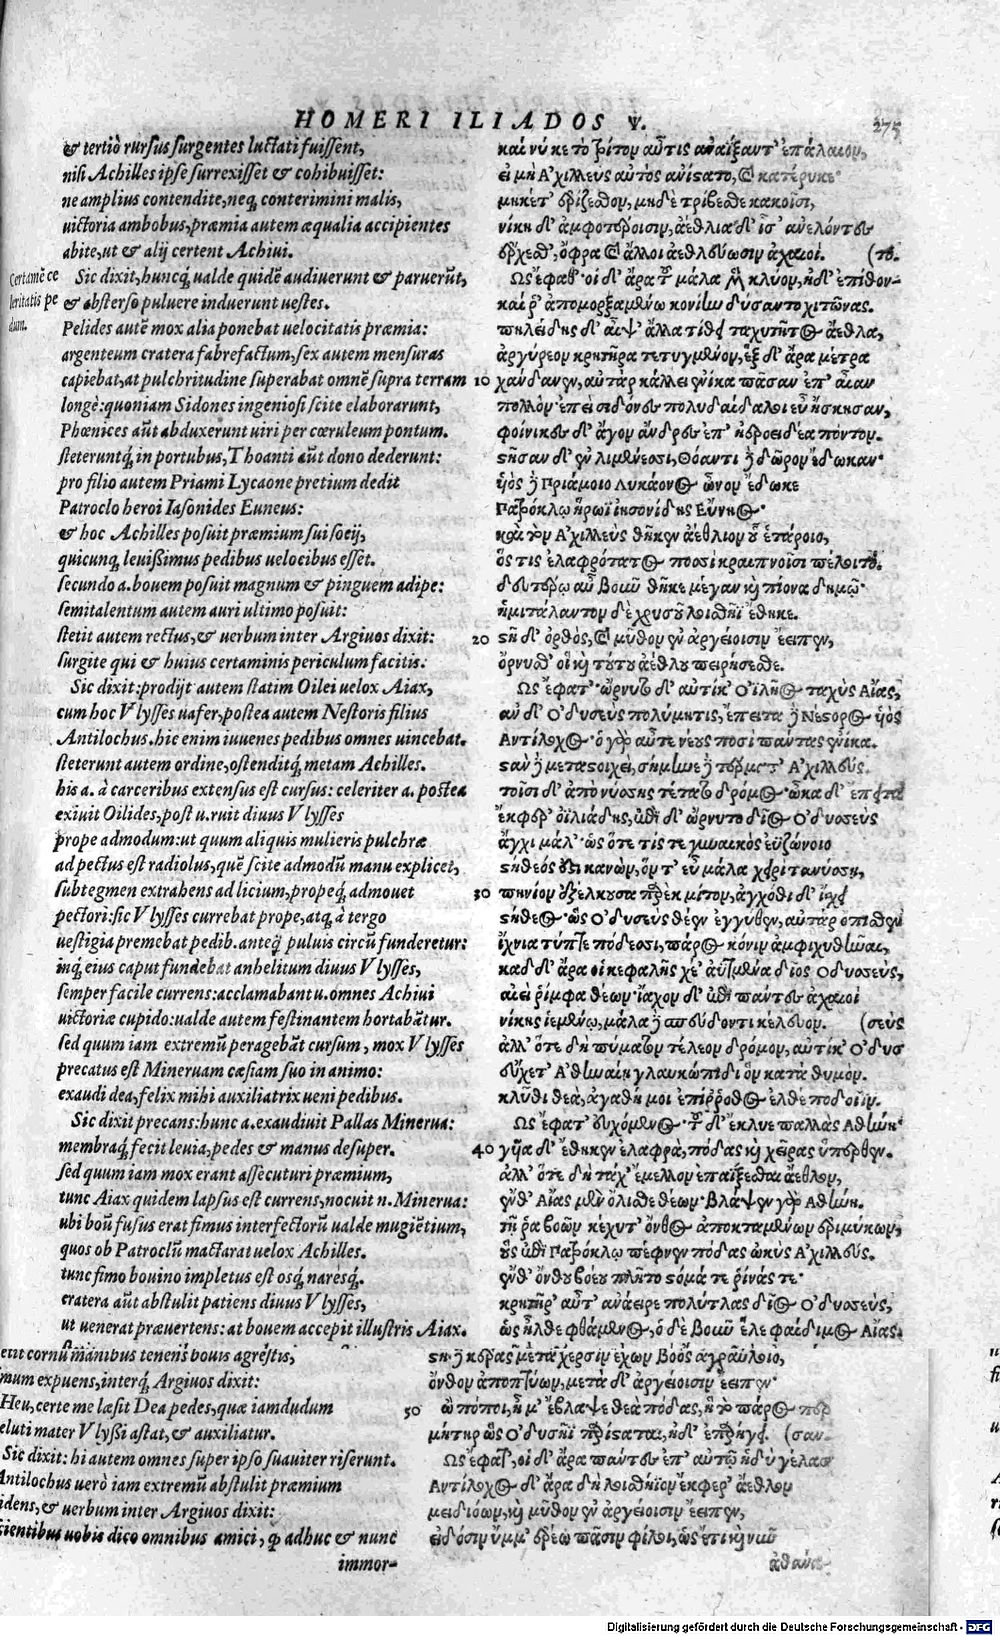 HOMERI ILIADOS Ψ.
275
& tertiò rursus surgentes luctati fuissent,
nisi Achilles ipse surrexisset & cohibuisset:
ne amplius contendite, neq; conterimini malis,
uictoria ambobus, præmia autem æqualia accipientes
abite, ut & alij certent Achiui.
Certamē ce
leritatis pe
dum.
Sic dixit, huncq; ualde quidē audiuerunt & paruerūt,
& absterso puluere induerunt uestes.
Pelides autē mox alia ponebat uelocitatis præmia:
argenteum cratera fabrefactum, sex autem mensuras
capiebat, at pulchritudine superabat omnē supra terram
longè: quoniam Sidones ingeniosi scite elaborarunt,
Phœnices aūt abduxerunt uiri per cœruleum pontum.
steteruntq; in portubus, Thoanti aūt dono dederunt:
pro filio autem Priami Lycaone pretium dedit
Patroclo heroi Iasonides Euneus:
& hoc Achilles posuit præmium sui socij,
quicunq; leuißimus pedibus uelocibus esset.
secundo a. bouem posuit magnum & pinguem adipe:
semitalentum autem auri ultimo posuit:
stetit autem rectus, & uerbum inter Argiuos dixit:
surgite qui & huius certaminis periculum facitis.
Sic dixit: prodijt autem statim Oilei uelox Aiax,
cum hoc Vlysses uafer, postea autem Nestoris filius
Antilochus. hic enim iuuenes pedibus omnes uincebat.
steterunt autem ordine, ostenditq; metam Achilles.
his a. à carceribus extensus est cursus: celeriter a. postea
exiuit Oilides, post u. ruit diuus Vlysses
prope admodum: ut quum aliquis mulieris pulchræ
ad pectus est radiolus, quē scite admodū manu explicet,
subtegmen extrahens ad licium, propeq; admouet
pectori: sic Vlysses currebat prope, atq; à tergo
uestigia premebat pedib. anteq̃ puluis circū funderetur:
inq; eius caput fundebat anhelitum diuus Vlysses,
semper facile currens: acclamabant u. omnes Achiui
uictoriæ cupido: ualde autem festinantem hortabātur.
sed quum iam extremū peragebāt cursum, mox Vlysses
precatus est Mineruam cæsiam suo in animo:
exaudi dea, felix mihi auxiliatrix ueni pedibus.
Sic dixit precans: hunc a. exaudiuit Pallas Minerua:
membraq; fecit leuia, pedes & manus desuper.
sed quum iam mox erant assecuturi præmium,
tunc Aiax quidem lapsus est currens, nocuit n. Minerua:
ubi boū fusus erat fimus interfectorū ualde mugiētium,
quos ob Patroclū mactarat uelox Achilles.
tunc fimo bouino impletus est osq; naresq;.
cratera aūt abstulit patiens diuus Vlysses,
ut uenerat præuertens: at bouem accepit illustris Aiax.
etit cornu manibus tenens bouis agrestis,
mum expuens, interq; Argiuos dixit:
Heu, certe me læsit Dea pedes, quæ iamdudum
eluti mater Vlyssi astat, & auxiliatur.
Sic dixit: hi autem omnes super ipso suauiter riserunt.
Antilochus uerò iam extremū abstulit præmium
idens, & uerbum inter Argiuos dixit:
cientibus uobis dico omnibus amici, ꝙ adhuc & nunc
immor-
καί νύ κε τὸ τρίτον αὖτις ἀναΐξαντ' ἐπάλαιον,
εἰ μὴ Ἀχιλλεὺς αὐτὸς ἀνίστατο, καὶ κατέρυκε·
μηκέτ' ἐρίζεσθον, μηδὲ τρίβεσθε κακοῖσι,
νίκη δ' ἀμφοτέροισιν, ἀέθλια δ' ἶσ' ἀνελόντες
ἔρχεσθ', ὄφρα καὶ ἄλλοι ἀεθλεύωσιν ἀχαιοί. (το.
Ὣς ἔφαθ'· οἱ δ' ἄρα τοῦ μάλα μὲν κλύον, ἠδ' ἐπίθον-
καί ῥ' ἀπομορξαμένω κονίην δύσαντο χιτῶνας.
πηλείδης δ' αἶψ' ἄλλα τίθει ταχυτῆτος ἄεθλα,
ἀργύρεον κρητῆρα τετυγμένον, ἓξ δ' ἄρα μέτρα
10 χάνδανεν, αὐτὰρ κάλλει ἐνίκα πᾶσαν ἐπ' αἶαν
πολλὸν· ἐπεὶ σιδόνες πολυδαίδαλοι εὖ ἤσκησαν,
φοίνικες δ' ἄγον ἄνδρες ἐπ' ἠεροειδέα πόντον.
στῆσαν δ' ἐν λιμένεσσι, Θόαντι δὲ δῶρον ἔδωκαν·
υἷος δὲ Πριάμοιο Λυκάονος ὦνον ἔδωκε
Πατρόκλῳ ἥρωϊ ἰησονίδης Εὔνηος·
καὶ τὸν Ἀχιλλεὺς θῆκεν ἀέθλιον οὗ ἑτάροιο,
ὅς τις ἐλαφρότατος ποσσὶ κραιπνοῖσι πέλοιτο.
δευτέρῳ αὖ βοῦν θῆκε μέγαν καὶ πίονα δημῷ·
ἡμιτάλαντον δὲ χρυσοῦ λοισθήϊ' ἔθηκε.
20 στῆ δ' ὀρθὸς, καὶ μῦθον ἐν ἀργείοισιν ἔειπεν,
ὄρνυσθ' οἳ καὶ τούτου ἀέθλου πειρήσεσθε.
Ὣς ἔφατ'· ὤρνυτο δ' αὐτίκ' Ὀϊλῆος ταχὺς Αἴας,
ἂν δ' Ὀδυσεὺς πολύμητις, ἔπειτα δὲ Νέστορος υἱὸς
Ἀντίλοχος· ὁ γὰρ αὖτε νέους ποσὶ πάντας ἐνίκα.
στὰν δὲ μεταστοιχεὶ, σήμηνε δὲ τέρματ' Ἀχιλλεύς.
τοῖσι δ' ἀπὸ νύσσης τέτατο δρόμος· ὦκα δ' ἔπειτα
ἔκφερ' ὀϊλιάδης, ἐπὶ δ' ὤρνυτο δῖος Ὀδυσσεὺς
ἄγχι μάλ'· ὡς ὅτε τίς τε γυναικὸς εὐζώνοιο
στήθεός ἐστι κανὼν, ὅν τ' εὖ μάλα χερσὶ τανύσσῃ,
30 πηνίον ἐξέλκουσα παρὲκ μίτον, ἀγχόθι δ' ἴσχει
στήθεος· ὣς Ὀδυσεὺς θέεν ἐγγύθεν, αὐτὰρ ὄπισθεν
ἴχνια τύπτε πόδεσσι, πάρος κόνιν ἀμφιχυθῆναι,
καδ δ' ἄρα οἱ κεφαλῆς χέ' ἀϋτμένα δῖος Ὀδυσσεὺς,
αἰεὶ ῥίμφα θέων· ἴαχον δ' ἐπὶ πάντες ἀχαιοὶ
νίκης ἱεμένῳ, μάλα δὲ σπεύδοντι κέλευον. (σεὺς
ἀλλ' ὅτε δὴ πύματον τέλεον δρόμον, αὐτίκ' Ὀδυσ
εὔχετ' Ἀθηναίη γλαυκώπιδι ὃν κατὰ θυμόν.
κλῦθι θεὰ, ἀγαθή μοι ἐπίρροθος ἐλθὲ ποδοῖιν.
Ὣς ἔφατ' εὐχόμενος· τοῦ δ' ἔκλυε παλλὰς Ἀθήνη·
40 γυῖα δ' ἔθηκεν ἐλαφρὰ, πόδας καὶ χεῖρας ὕπερθεν.
ἀλλ' ὅτε δὴ τάχ' ἔμελλον ἐπαΐξεσθαι ἄεθλον,
ἔνθ' Αἴας μὲν ὄλισθε θέων· βλάψεν γὰρ Ἀθήνη.
τῇ ῥα βοῶν κέχυτ' ὄνθος ἀποκταμένων ἐριμύκων,
οὓς ἐπὶ Πατρόκλῳ πέφνεν πόδας ὠκὺς Ἀχιλλεύς.
ἐνθ' ὄνθου βοέου πλῆτο στόμα τε ῥῖνάς τε·
κρητῆρ' αὖτ' ἀνάειρε πολύτλας δῖος Ὀδυσσεὺς,
ὡς ἦλθε φθάμενος, ὁ δὲ βοῦν ἕλε φαίδιμος Αἴας.
στῆ δὲ κέρας μετὰ χερσὶν ἔχων βοὸς ἀγραύλοιο,
ὄνθον ἀποπτύων, μετὰ δ' ἀργείοισιν ἔειπεν·
50 ὢ πόποι, ἦ μ' ἔβλαψε θεὰ πόδας, ἣ τὸ πάρος περ
μήτηρ ὣς Ὀδυσῆϊ παρίσταται, ἠδ' ἐπαρήγει. (σαν-
Ὣς ἔφατ', οἱ δ' ἄρα πάντες ἐπ' αὐτῷ ἡδὺ γέλασ
Ἀντίλοχος δ' ἄρα δὴ λοισθήϊον ἔκφερ' ἄεθλον
μειδιόων, καὶ μῦθον ἐν ἀργείοισιν ἔειπεν,
εἰδόσιν ὔμμ' ἐρέω πᾶσιν φίλοι, ὡς ἔτι καὶ νῦν
ἀθανα-
Digitalisierung gefördert durch die Deutsche Forschungsgemeinschaft - DFG